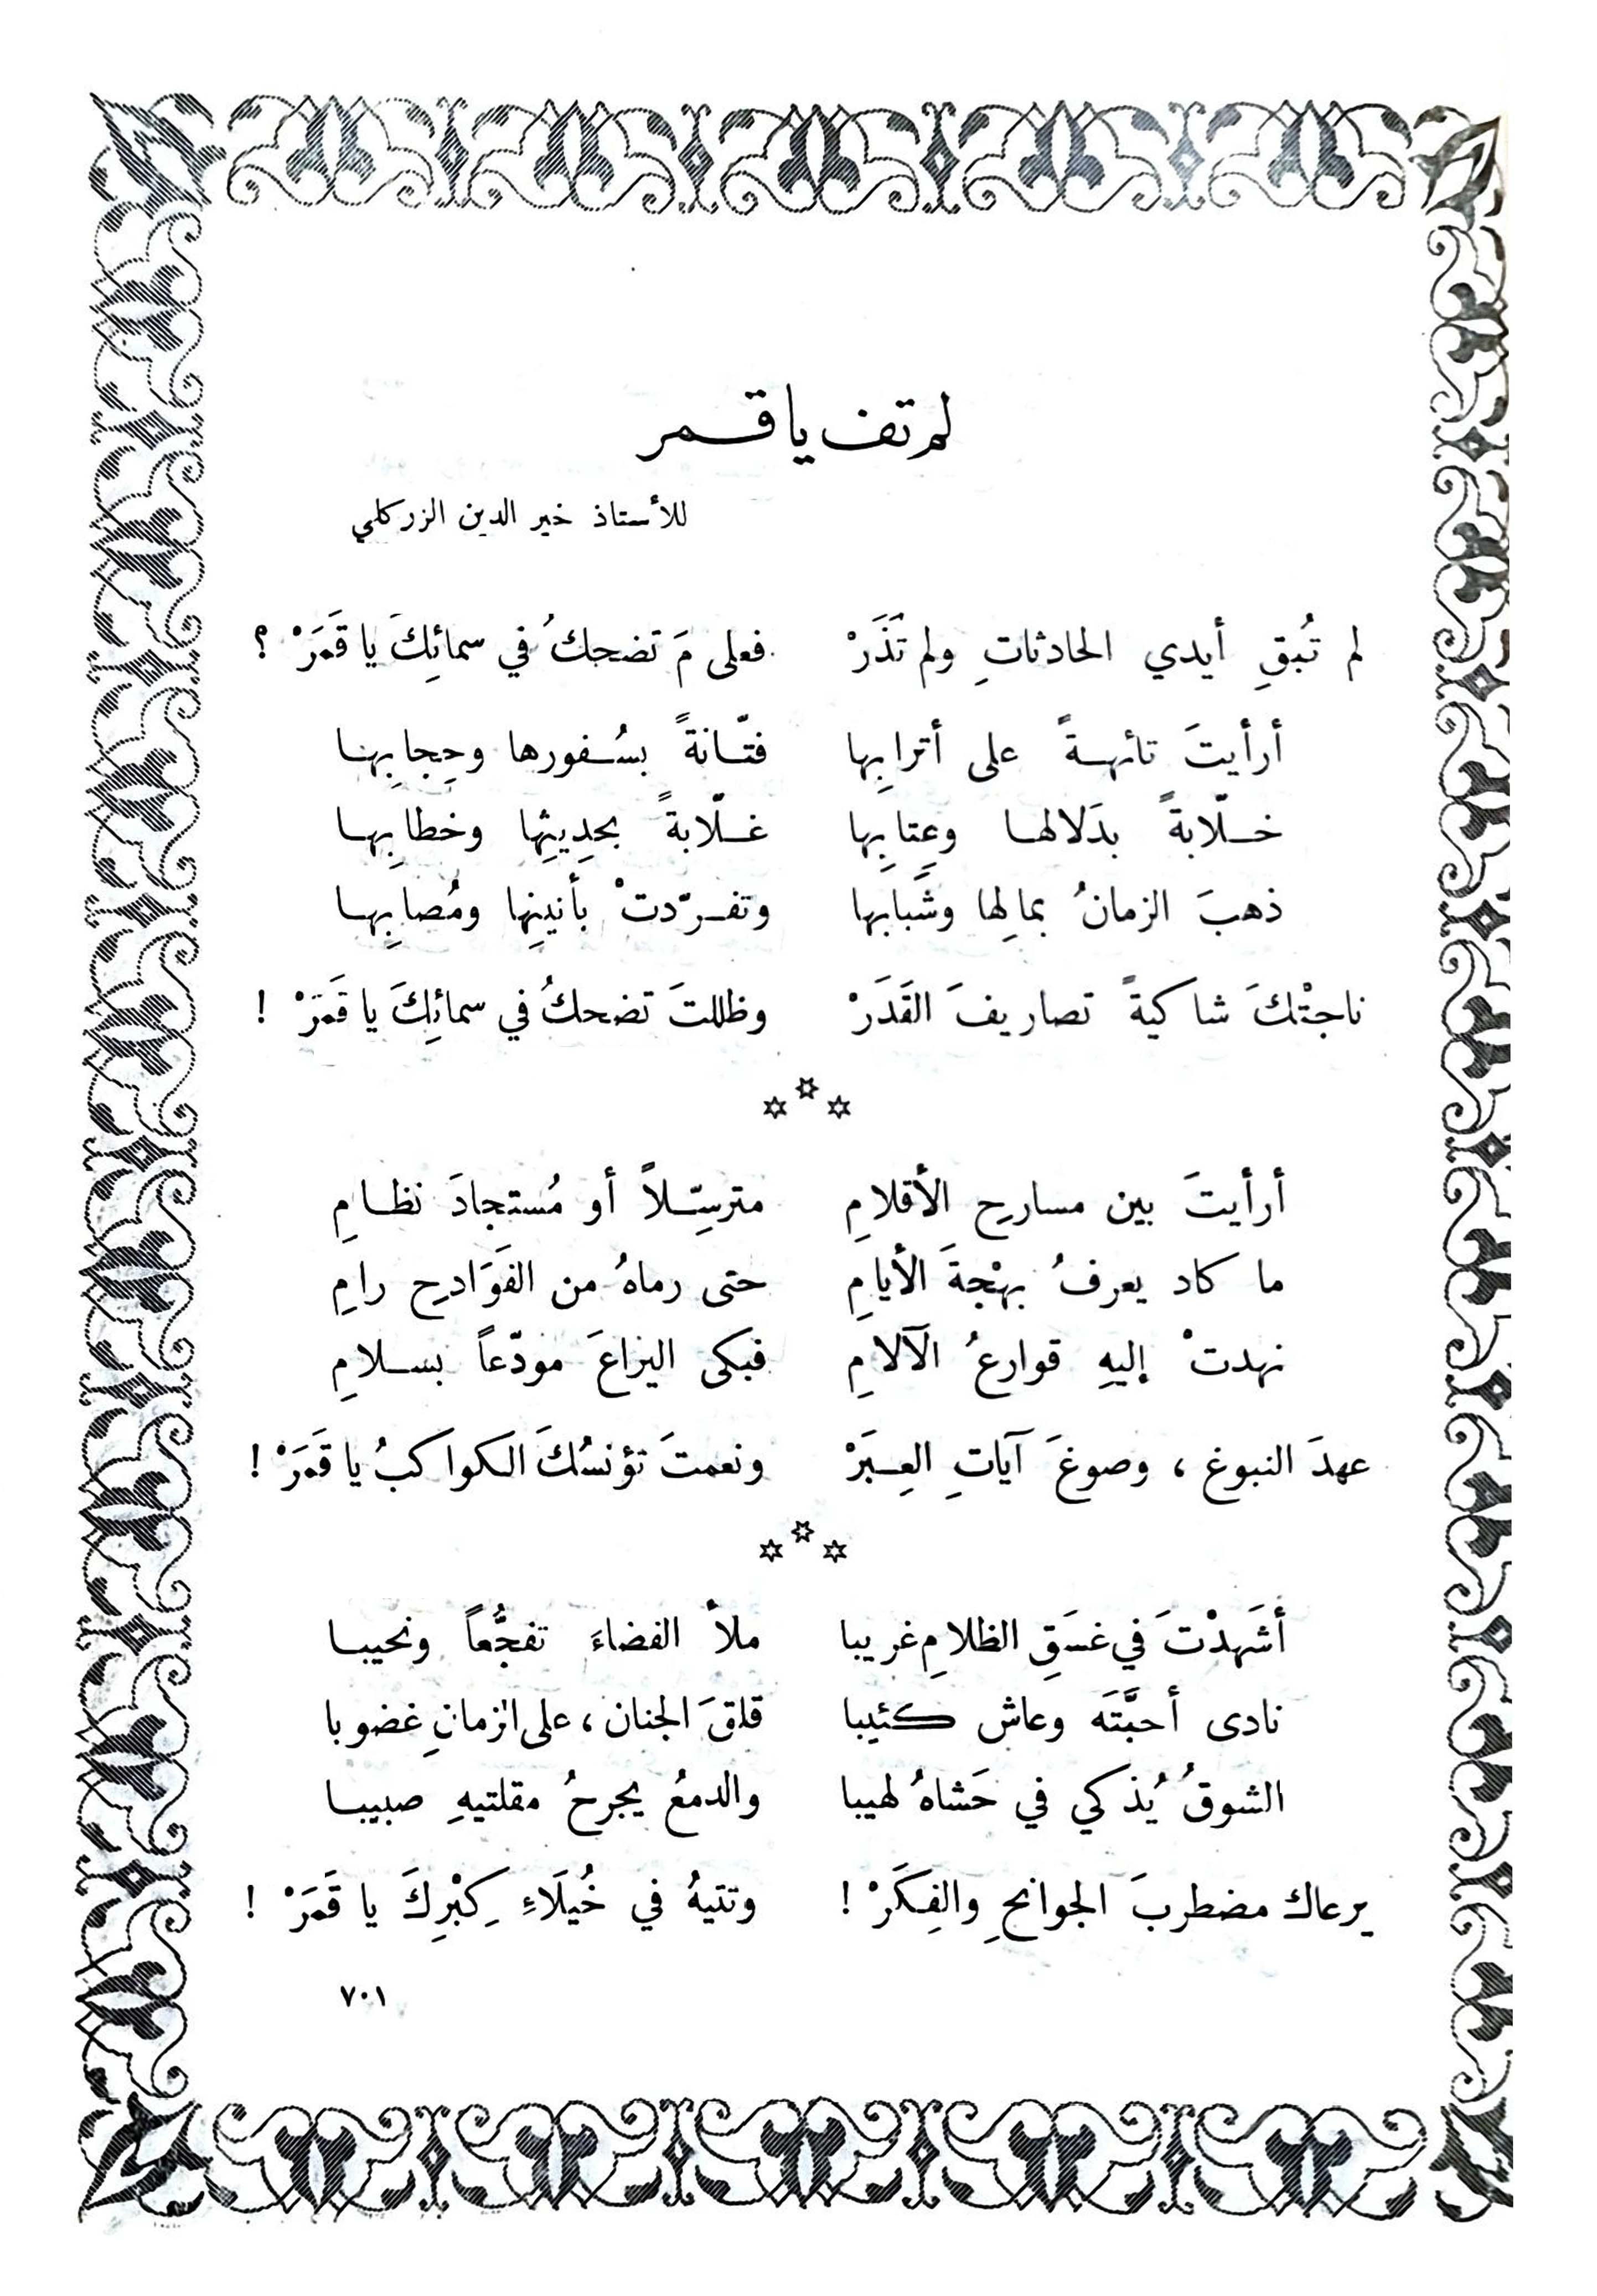 لم تف يا قمر
للأستاذ خير الدين الزركلي
لم تُبقِ أيدي الحادثاتِ ولم تَذَرْ فعلى مَ تضحكُ في سمائِكَ يا قَمَرْ ؟
أرأيتَ تائهةً على أترابِها فتّانةً بسُفورها وحِجابِها
خلّابةً بدَلالها وعِتابِها غلّابةً بحدِيثِها وخطابِها
ذهبَ الزمانُ بمالِها وشَبابها وتفرّدتْ بأنينِها ومُصابِها
ناجتْكَ شاكيةً تصاريفَ القَدَرْ وظللتَ تضحكُ في سمائِكَ يا قَمَرْ !
أرأيتَ بين مسارحِ الأقلامِ مترسِّلاً أو مُستجادَ نظامِ
ما كاد يعرفُ بهْجةَ الأيامِ حتى رماهُ من الفَوَادحِ رامِ
نهدتْ إليهِ قوارعُ الآلامِ فبكى اليراعَ مودّعاً بسلامِ
عهدَ النبوغ ، وصوغَ آياتِ العِبَرْ ونعمتَ تؤنسُكَ الكواكبُ يا قَمَرْ !
أشَهِدْتَ في غسَقِ الظلامِ غريبا ملأ الفضاءَ تفجُّعاً ونحيبا
نادى أحبَّتَه وعاش كئيبا قلقَ الجنان ، على الزمانِ غضوبا
الشوقُ يُذكي في حَشاهُ لهيبا والدمعُ يجرحُ مقلتيهِ صبيبا
يرعاك مضطربَ الجوانحِ والفِكَرْ ! وتتيهُ في خُيلَاءِ كِبْرِكَ يا قَمَرْ !
٧٠١